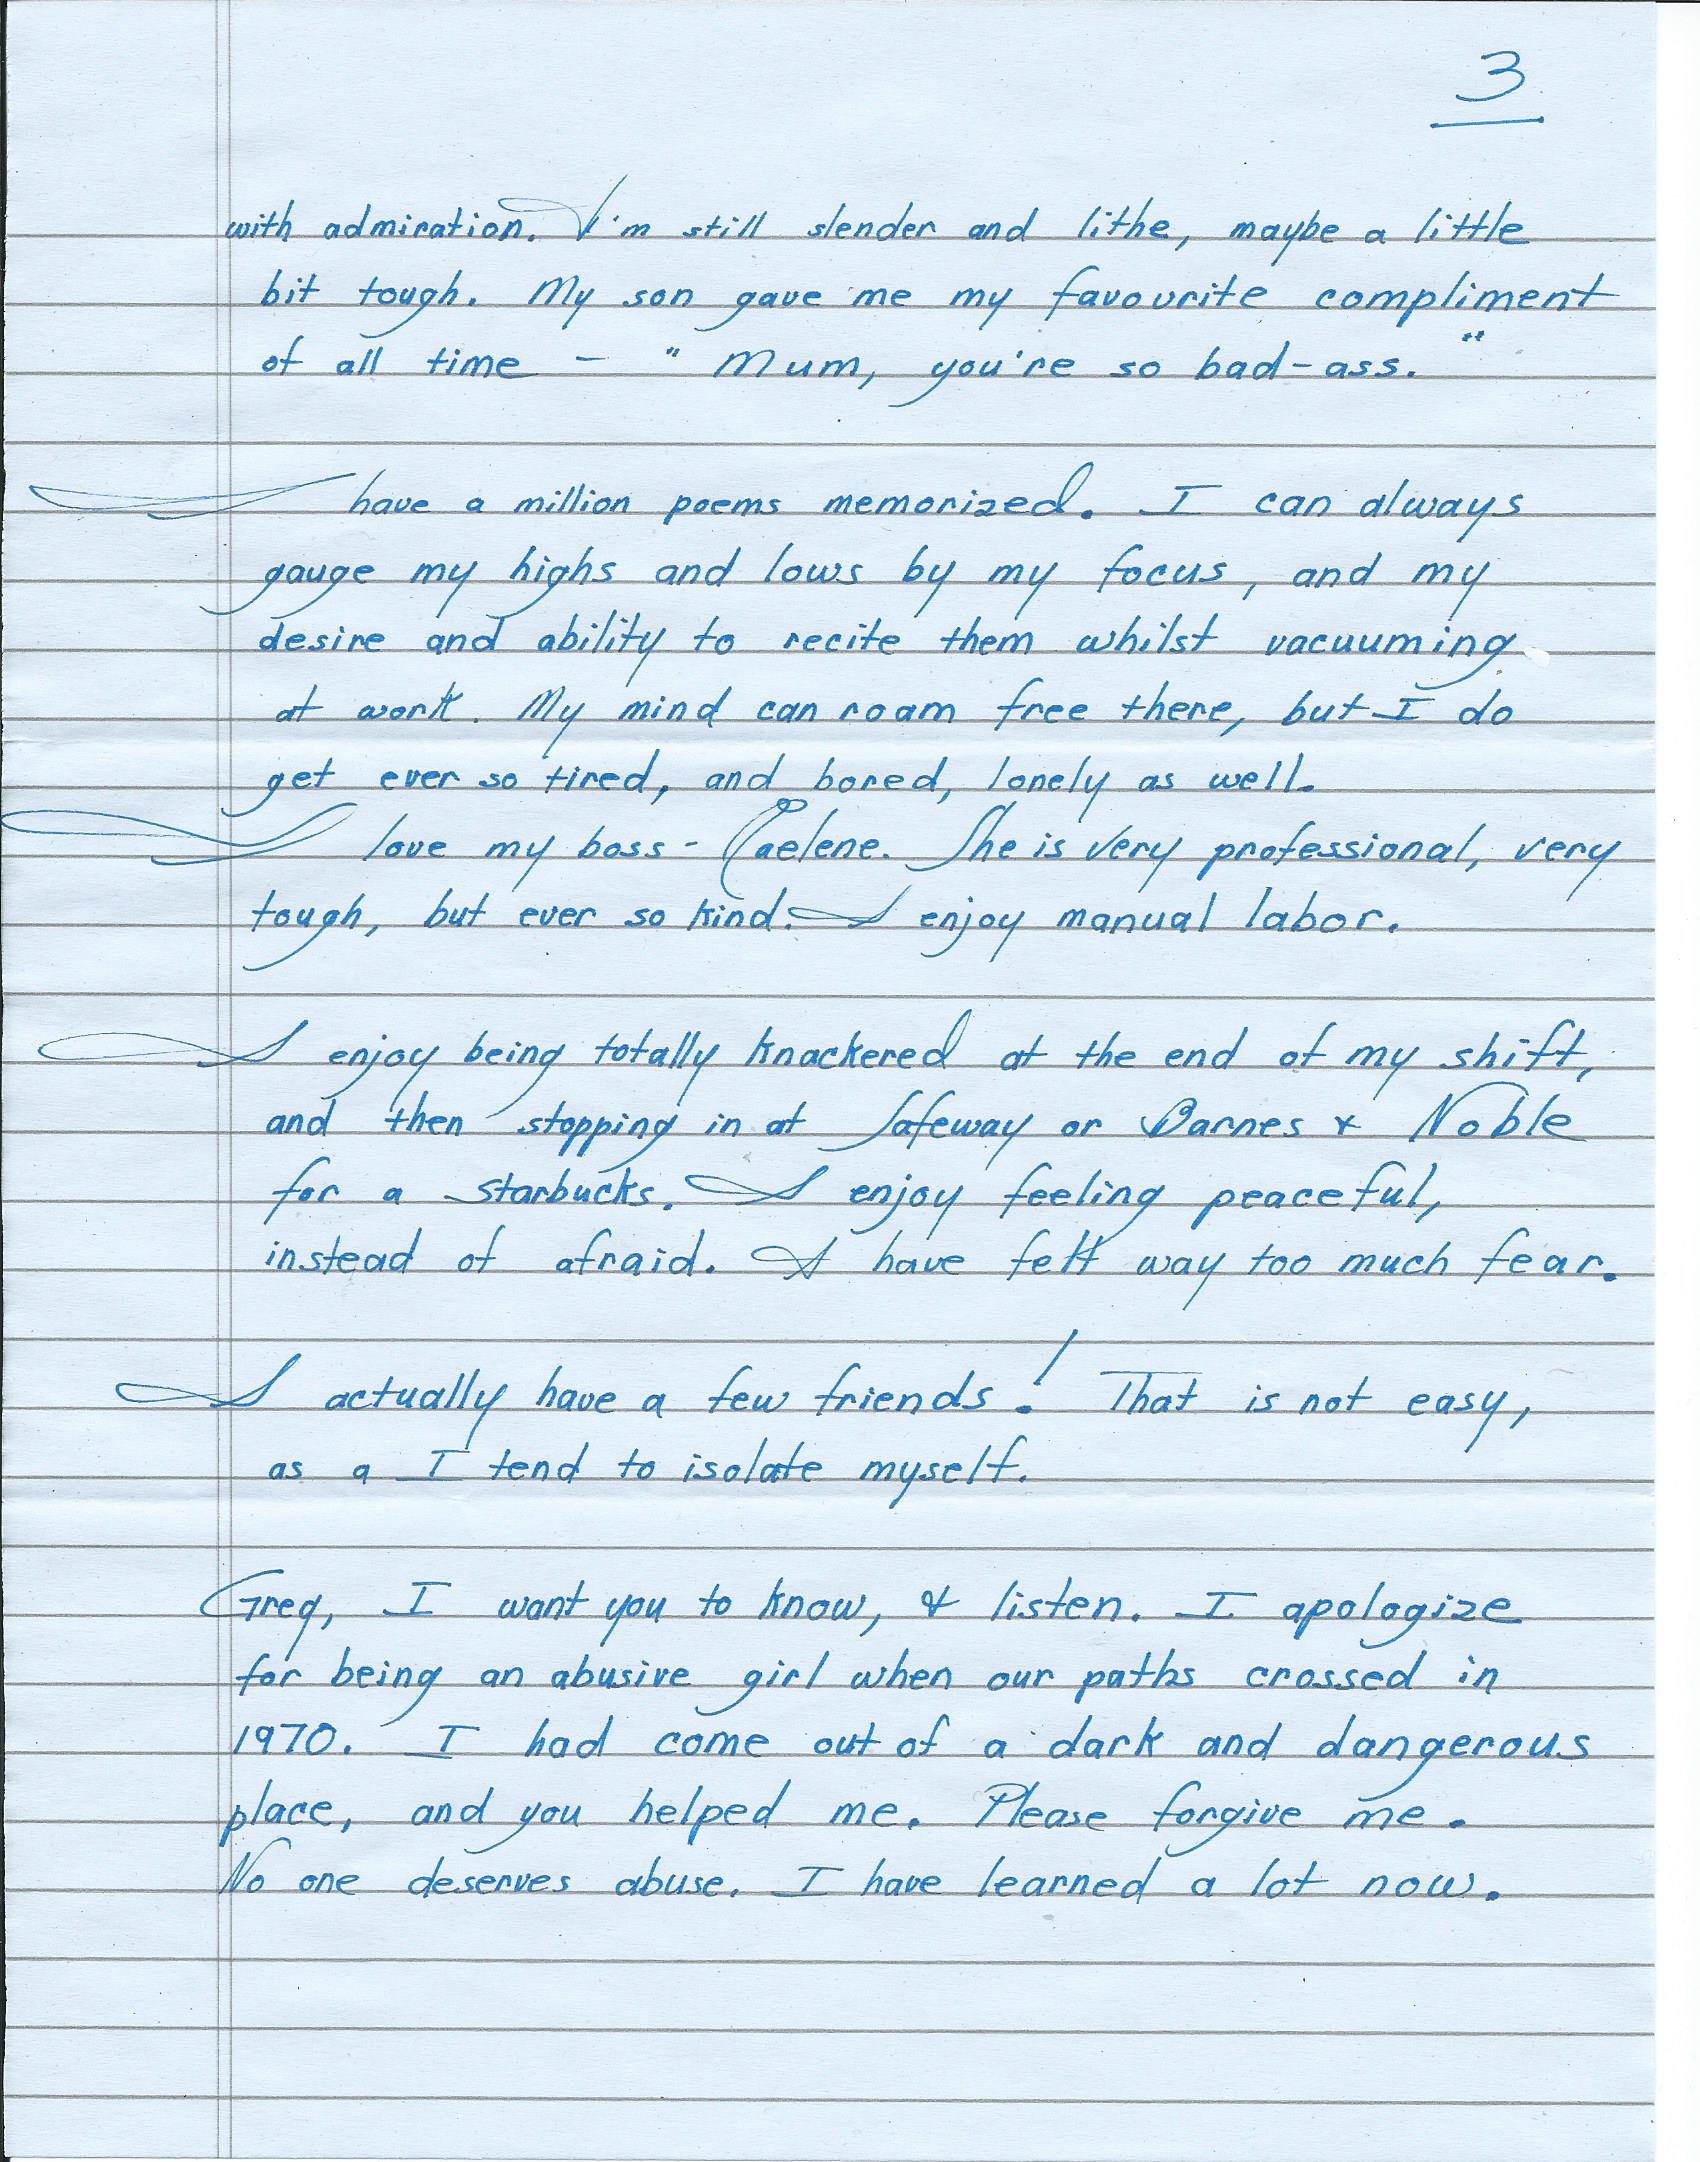 3
with admiration. I'm still slender and lithe, maybe a little
bit tough. My son gave me my favourite compliment
of all time - "Mum, you're so bad-ass."
I have a million poems memorized. I can always
gauge my highs and lows by my focus, and my
desire and ability to recite them whilst vacuuming
at work. My mind can roam free there, but I do
get ever so tired, and bored, lonely as well.
I love my boss - Raelene. She is very professional, very
tough, but ever so kind. I enjoy manual labor.
I enjoy being totally knackered at the end of my shift,
and then stopping in at Safeway or Barnes & Noble
for a Starbucks. I enjoy feeling peaceful,
instead of afraid. I have felt way too much fear.
I actually have a few friends! That is not easy,
as a I tend to isolate myself.
Greg, I want you to know, & listen. I apologize
for being an abusive girl when our paths crossed in
1970. I had come out of a dark and dangerous
place, and you helped me. Please forgive me.
No one deserves abuse. I have learned a lot now.